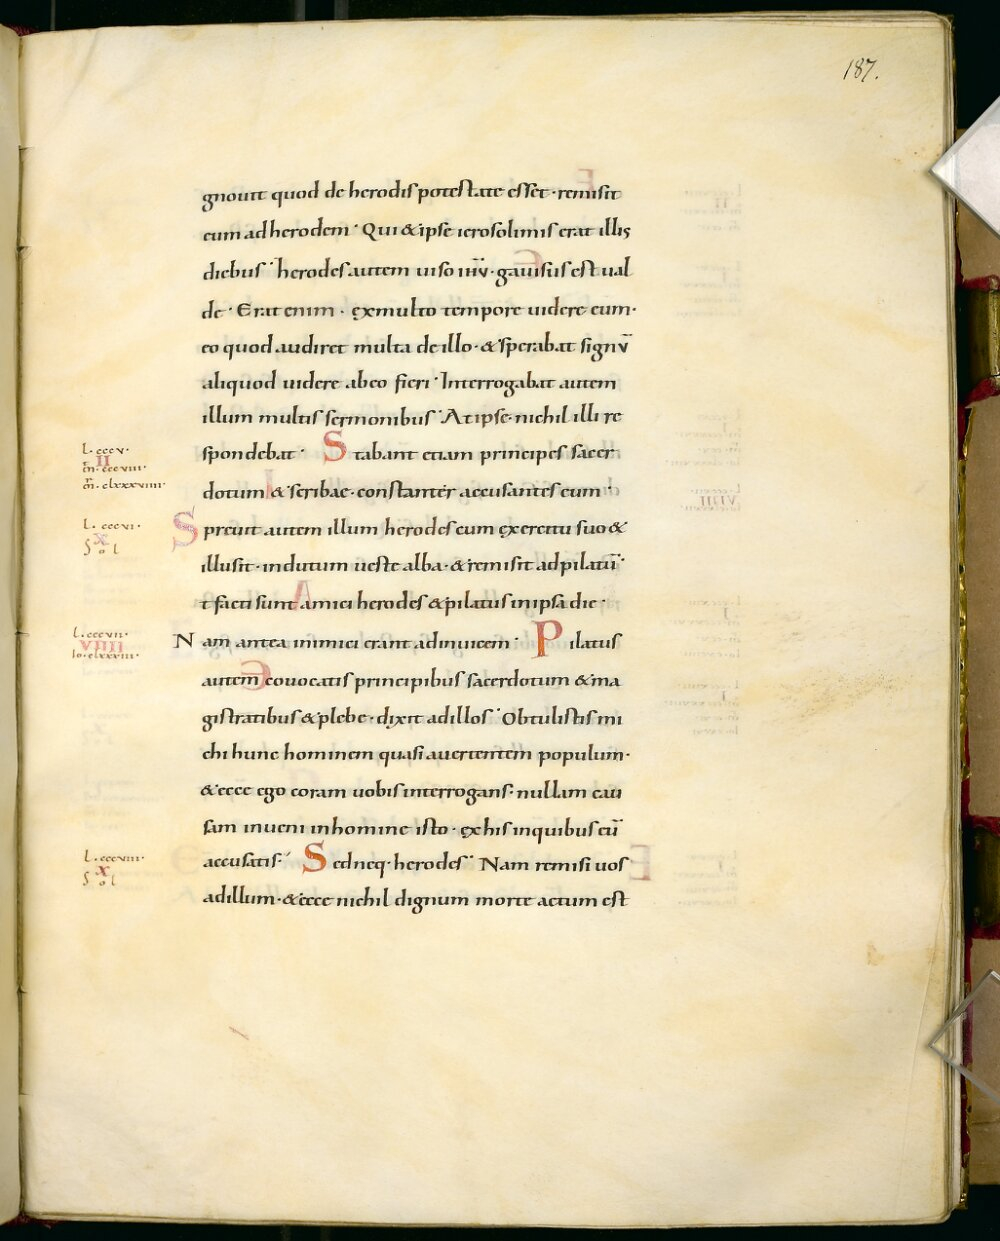 187.
gnouit quod de herodis potestate esset · remisit
eum ad herodem · Qui & ipse ierosolimis erat illis
diebus · herodes autem uiso ihū · gauisus est ual
de · Erat enim · ex multo tempore uidere eum ·
eo quod audiret multa de illo · & sperabat signū
aliquod uidere ab eo fieri · Interrogabat autem
illum multis sermonibus · At ipse · nichil illi re
spondebat · Stabant etiam principes sacer
dotum & scribae · constanter accusantes eum ·
Spreuit autem illum herodes cum exercitu suo &
illusit · indutum ueste alba · & remisit ad pilatū ·
t facti sunt amici herodes & pilatus in ipsa die ·
Nam antea inimici erant ad inuicem · Pilatus
autem couocatis principibus sacerdotum & ma
gistratibus & plebe · dixit ad illos · Obtulistis mi
chi hunc hominem quasi auertentem populum ·
& ecce ego coram uobis interrogans · nullam cau
sam inueni in homine isto · ex his in quibus eū
accusatis · Sed neq · herodes · Nam remisi uos
ad illum · & ecce nichil dignum morte actum est
L · cccv ·
II
m̄ · cccviii ·
m̄ · clxxxviiii ·
L · cccvi ·
X
Sol
L · cccvii ·
VIIII
Io · clxxxiii ·
L · cccviii ·
X
Sol